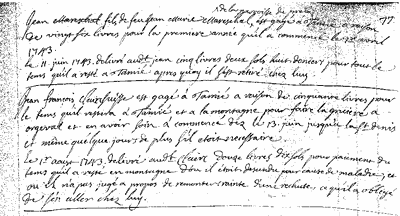 de la paroisse de
77
Jean Mareschal fils de feu Jean Marie Mareschal, est gagé a Tamié a raison
de vingt six livres pour la premiere année qu'il a commencé le 12 avril
1743.
le 11 juin 1743. delivré audt. jean cinq livres deux sols huit deniers pour tout le
tems qu'il a resté a Tamié apres quoy il s'est retiré chez luy.
Jean François est gagé a Tamié a raison de cinquante livres pour
le tems qu'il restera a Tamié et a la montagne pour faire la gruiere a
orgeval et en avoir soin a commencé dez le 13. juin jusqu'a la st denis
et même quelque jours de plus s'il etoit necessaire.
Le 1er aoust 1743. delivré audt. douze livres dix sols pour paiement du
tems qu'il a resté en montagne d'ou il etoit descendu pour cause de maladie, et
ou il n'a pas jugé a propos de remonter crainte d'une rechute, ce qui a obligé
de s'en aller chez luy.